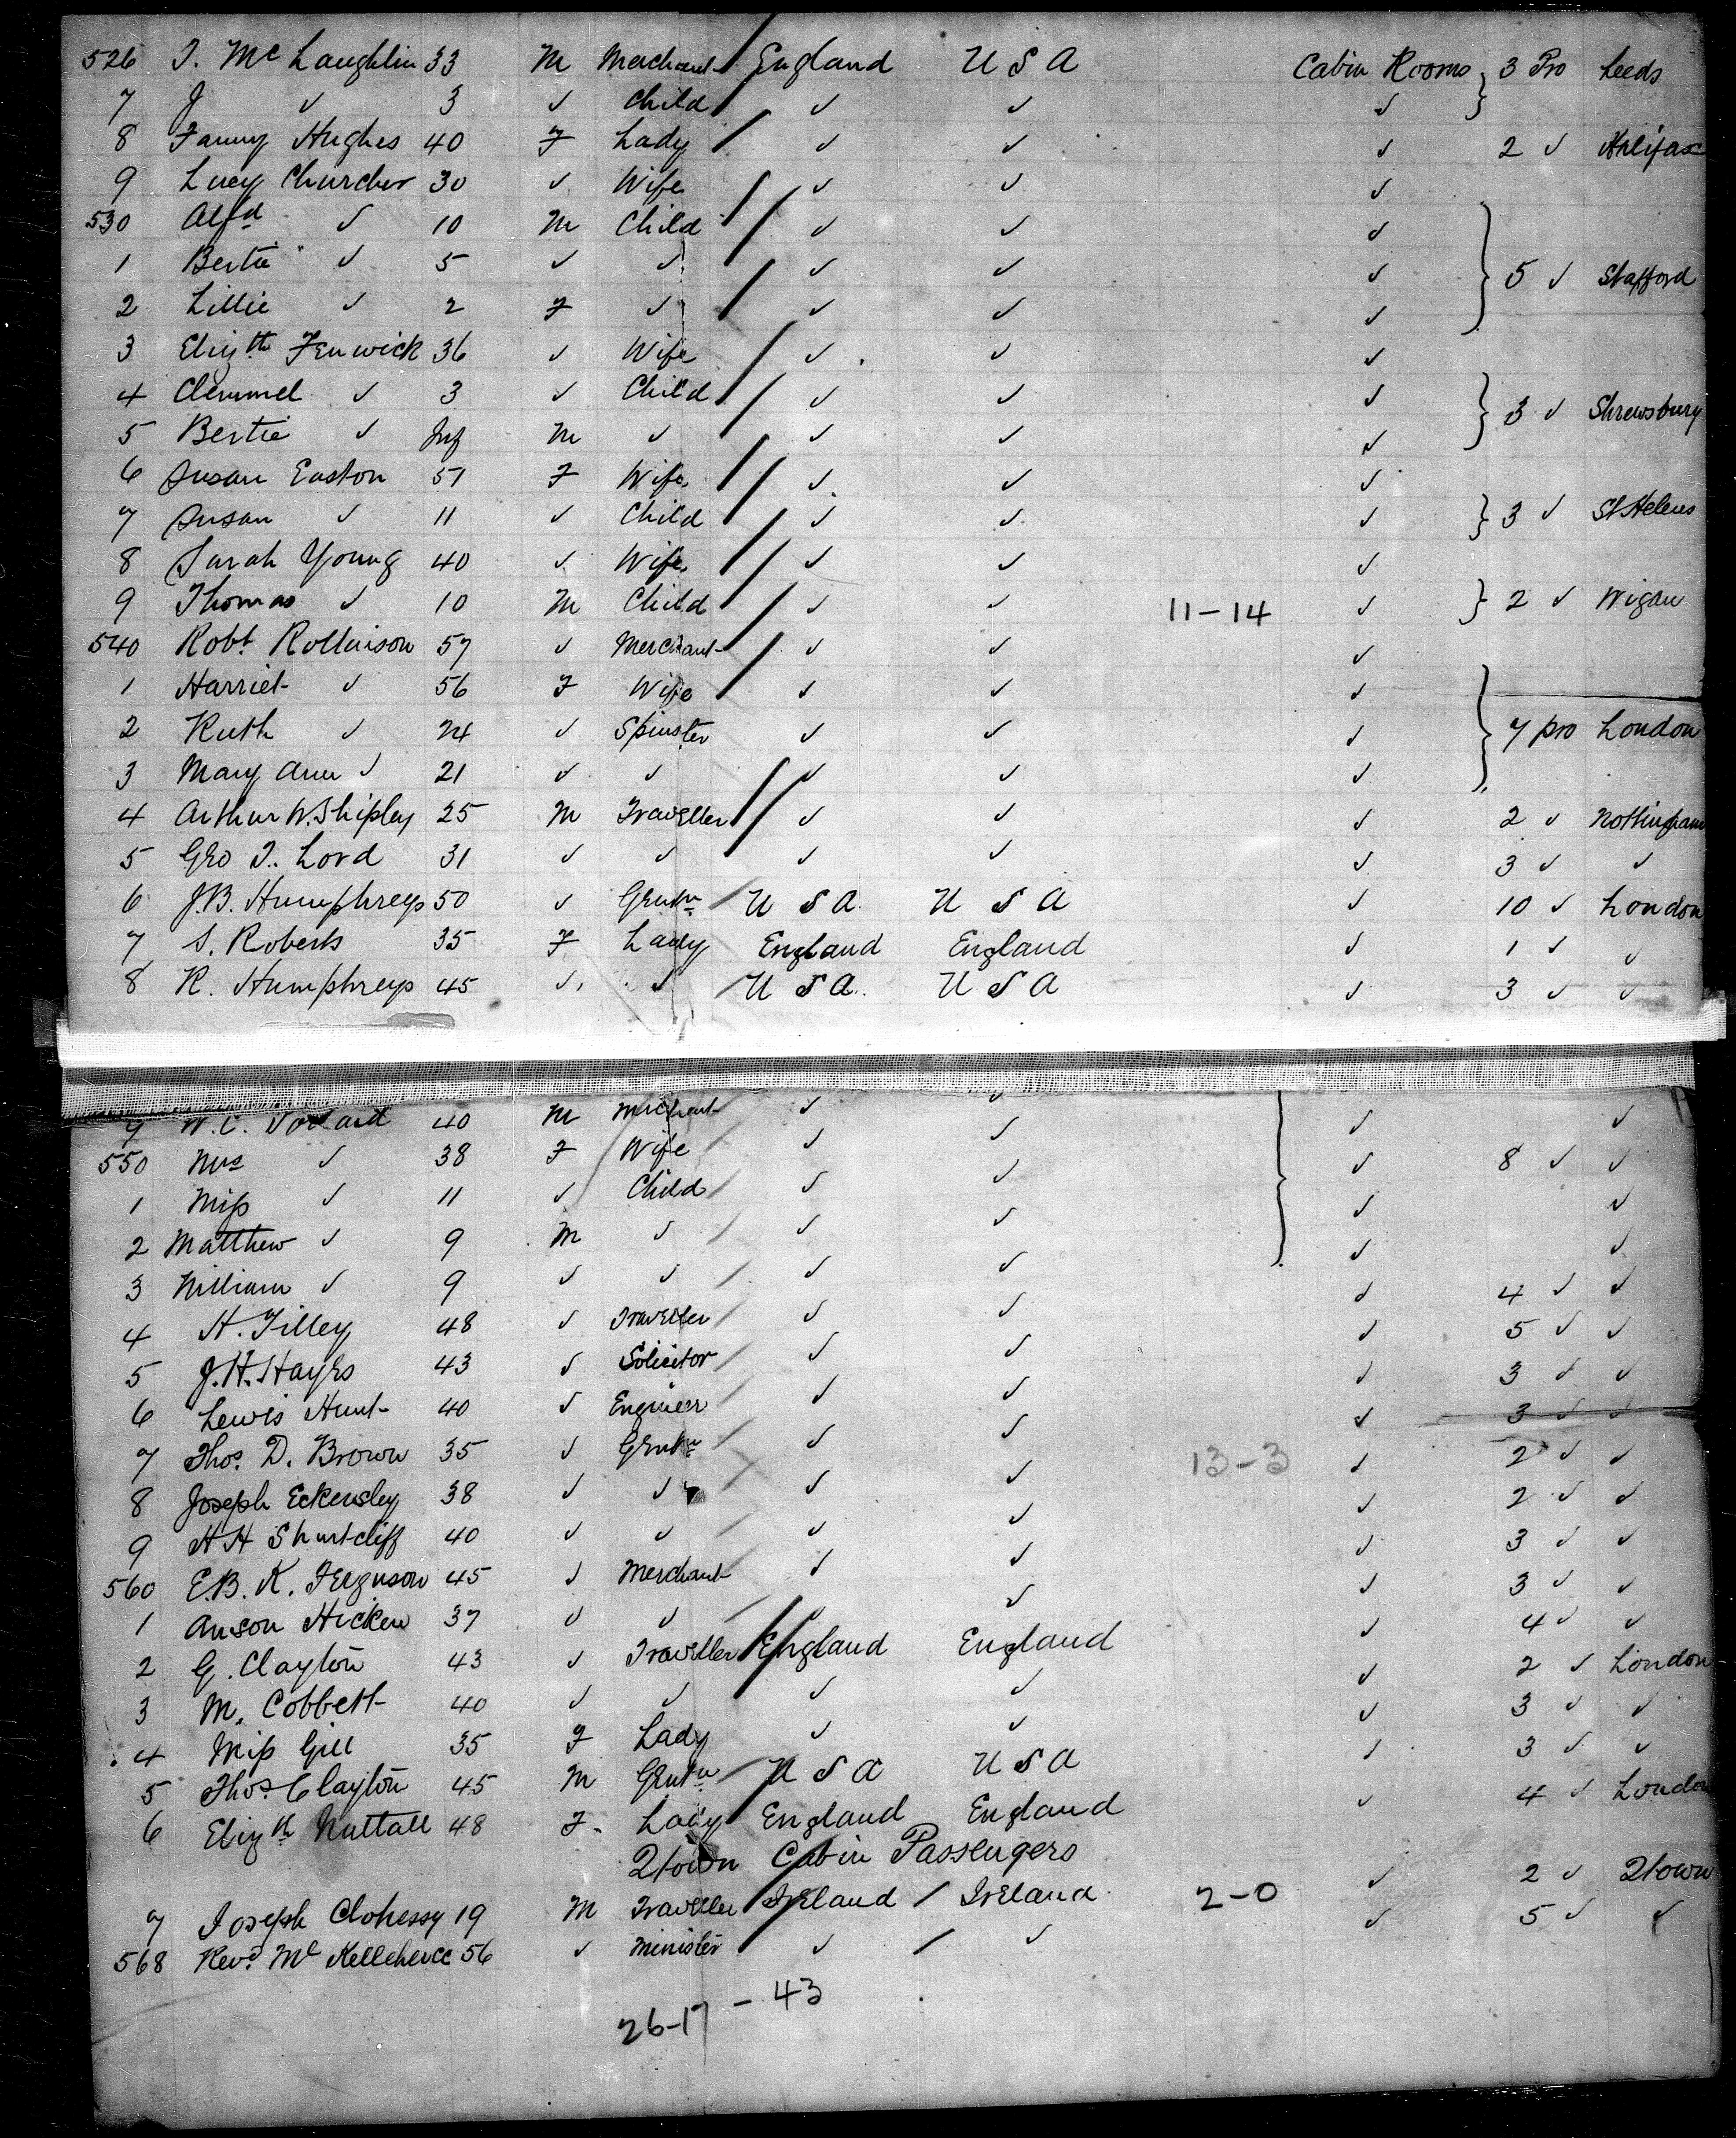 526 J. Mc Laughlin 33 M Merchant England U S A Cabin Rooms } 3 Pro Leeds
7 J ✓ 3 ✓ Child ✓ ✓ ✓
8 Fanny Hughes 40 F Lady ✓ ✓ ✓ 2 ✓ Halifax
9 Lucy Churcher 30 ✓ Wife ✓ ✓ ✓
530 Alfd ✓ 10 M Child ✓ ✓ ✓
1 Bertie ✓ 5 ✓ ✓ ✓ ✓ ✓ } 5 ✓ Stafford
2 Lillie ✓ 2 F ✓ ✓ ✓ ✓
3 Elizth Fenwick 36 ✓ Wife ✓ ✓ ✓
4 Clemmel ✓ 3 ✓ Child ✓ ✓ ✓ } 3 ✓ Shrewsbury
5 Bertie ✓ Inf M ✓ ✓ ✓ ✓
6 Susan Easton 51 F Wife ✓ ✓ ✓
7 Susan ✓ 11 ✓ Child ✓ ✓ ✓ } 3 ✓ St Helens
8 Sarah Young 40 ✓ Wife ✓ ✓ ✓
9 Thomas ✓ 10 M Child ✓ ✓ 11-14 ✓ } 2 ✓ Wigan
540 Robt Rollinson 57 ✓ Merchant ✓ ✓ ✓
1 Harriet ✓ 56 F Wife ✓ ✓ ✓
2 Ruth ✓ 24 ✓ Spinster ✓ ✓ ✓ } 7 pro London
3 Mary Ann ✓ 21 ✓ ✓ ✓ ✓ ✓
4 Arthur W. Shipley 25 M Traveller ✓ ✓ ✓ 2 ✓ Nottingham
5 Geo T. Lord 31 ✓ ✓ ✓ ✓ ✓ 3 ✓ ✓
6 J.B. Humphreys 50 ✓ Gentn U S A U S A ✓ 10 ✓ London
7 S. Roberts 35 F Lady England England ✓ 1 ✓ ✓
8 R. Humphreys 45 ✓ ✓ U S A U S A ✓ 3 ✓ ✓
9 W.C. 40 M Merchant ✓ ✓ ✓ ✓
550 Mrs ✓ 38 F Wife ✓ ✓ } ✓ 8 ✓ ✓
1 Miss ✓ 11 ✓ Child ✓ ✓ ✓ ✓
2 Matthew ✓ 9 M ✓ ✓ ✓ ✓ ✓
3 William ✓ 9 ✓ ✓ ✓ ✓ ✓ 4 ✓ ✓
4 H. Tilley 48 ✓ Traveller ✓ ✓ ✓ 5 ✓ ✓
5 J.H. Hayes 43 ✓ Solicitor ✓ ✓ ✓ 3 ✓ ✓
6 Lewis Hunt 40 ✓ Engineer ✓ ✓ ✓ 3 ✓ ✓
7 Thos. D. Brown 35 ✓ Gentn ✓ ✓ 13-3 ✓ 2 ✓ ✓
8 Joseph Eckersley 38 ✓ ✓ ✓ ✓ ✓ 2 ✓ ✓
9 H H Shurtcliff 40 ✓ ✓ ✓ ✓ ✓ 3 ✓ ✓
560 E.B. K. Ferguson 45 ✓ Merchant ✓ ✓ ✓ 3 ✓ ✓
1 Anson Hicken 37 ✓ ✓ ✓ ✓ ✓ 4 ✓ ✓
2 G. Clayton 43 ✓ Traveller England England ✓ 2 ✓ London
3 M. Cobbett 40 ✓ ✓ ✓ ✓ ✓ 3 ✓ ✓
4 Miss Gill 35 F Lady ✓ ✓ ✓ 3 ✓ ✓
5 Thos Clayton 45 M Gentn U S A U S A ✓ 4 ✓ London
6 Elizth Nuttall 48 F. Lady England England
Qtown Cabin Passengers
7 Joseph Clohessy 19 M Traveller Ireland Ireland 2-0 ✓ 2 ✓ Qtown
568 Revd Mc 56 ✓ Minister ✓ ✓ ✓ 5 ✓ ✓
26-17 - 43